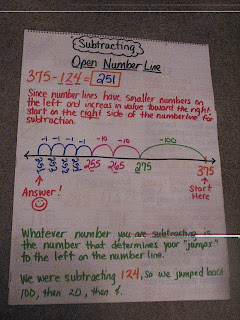 Subtracting
Open Number Line
375-124=251
Since number lines have smaller numbers on
the left and increas in value toward the right,
start on the right side of the numberline for
subtraction.
-1 -1 -1 -1 -10 -10 -100
251 252 253 254 255 265 275 375
Answer!
Start
Here
Whatever number you are subtracting is
the number that determines your "jumps"
to the left on the number line.
We were subtracting 124, so we jumped back
100, then 20, then 4.